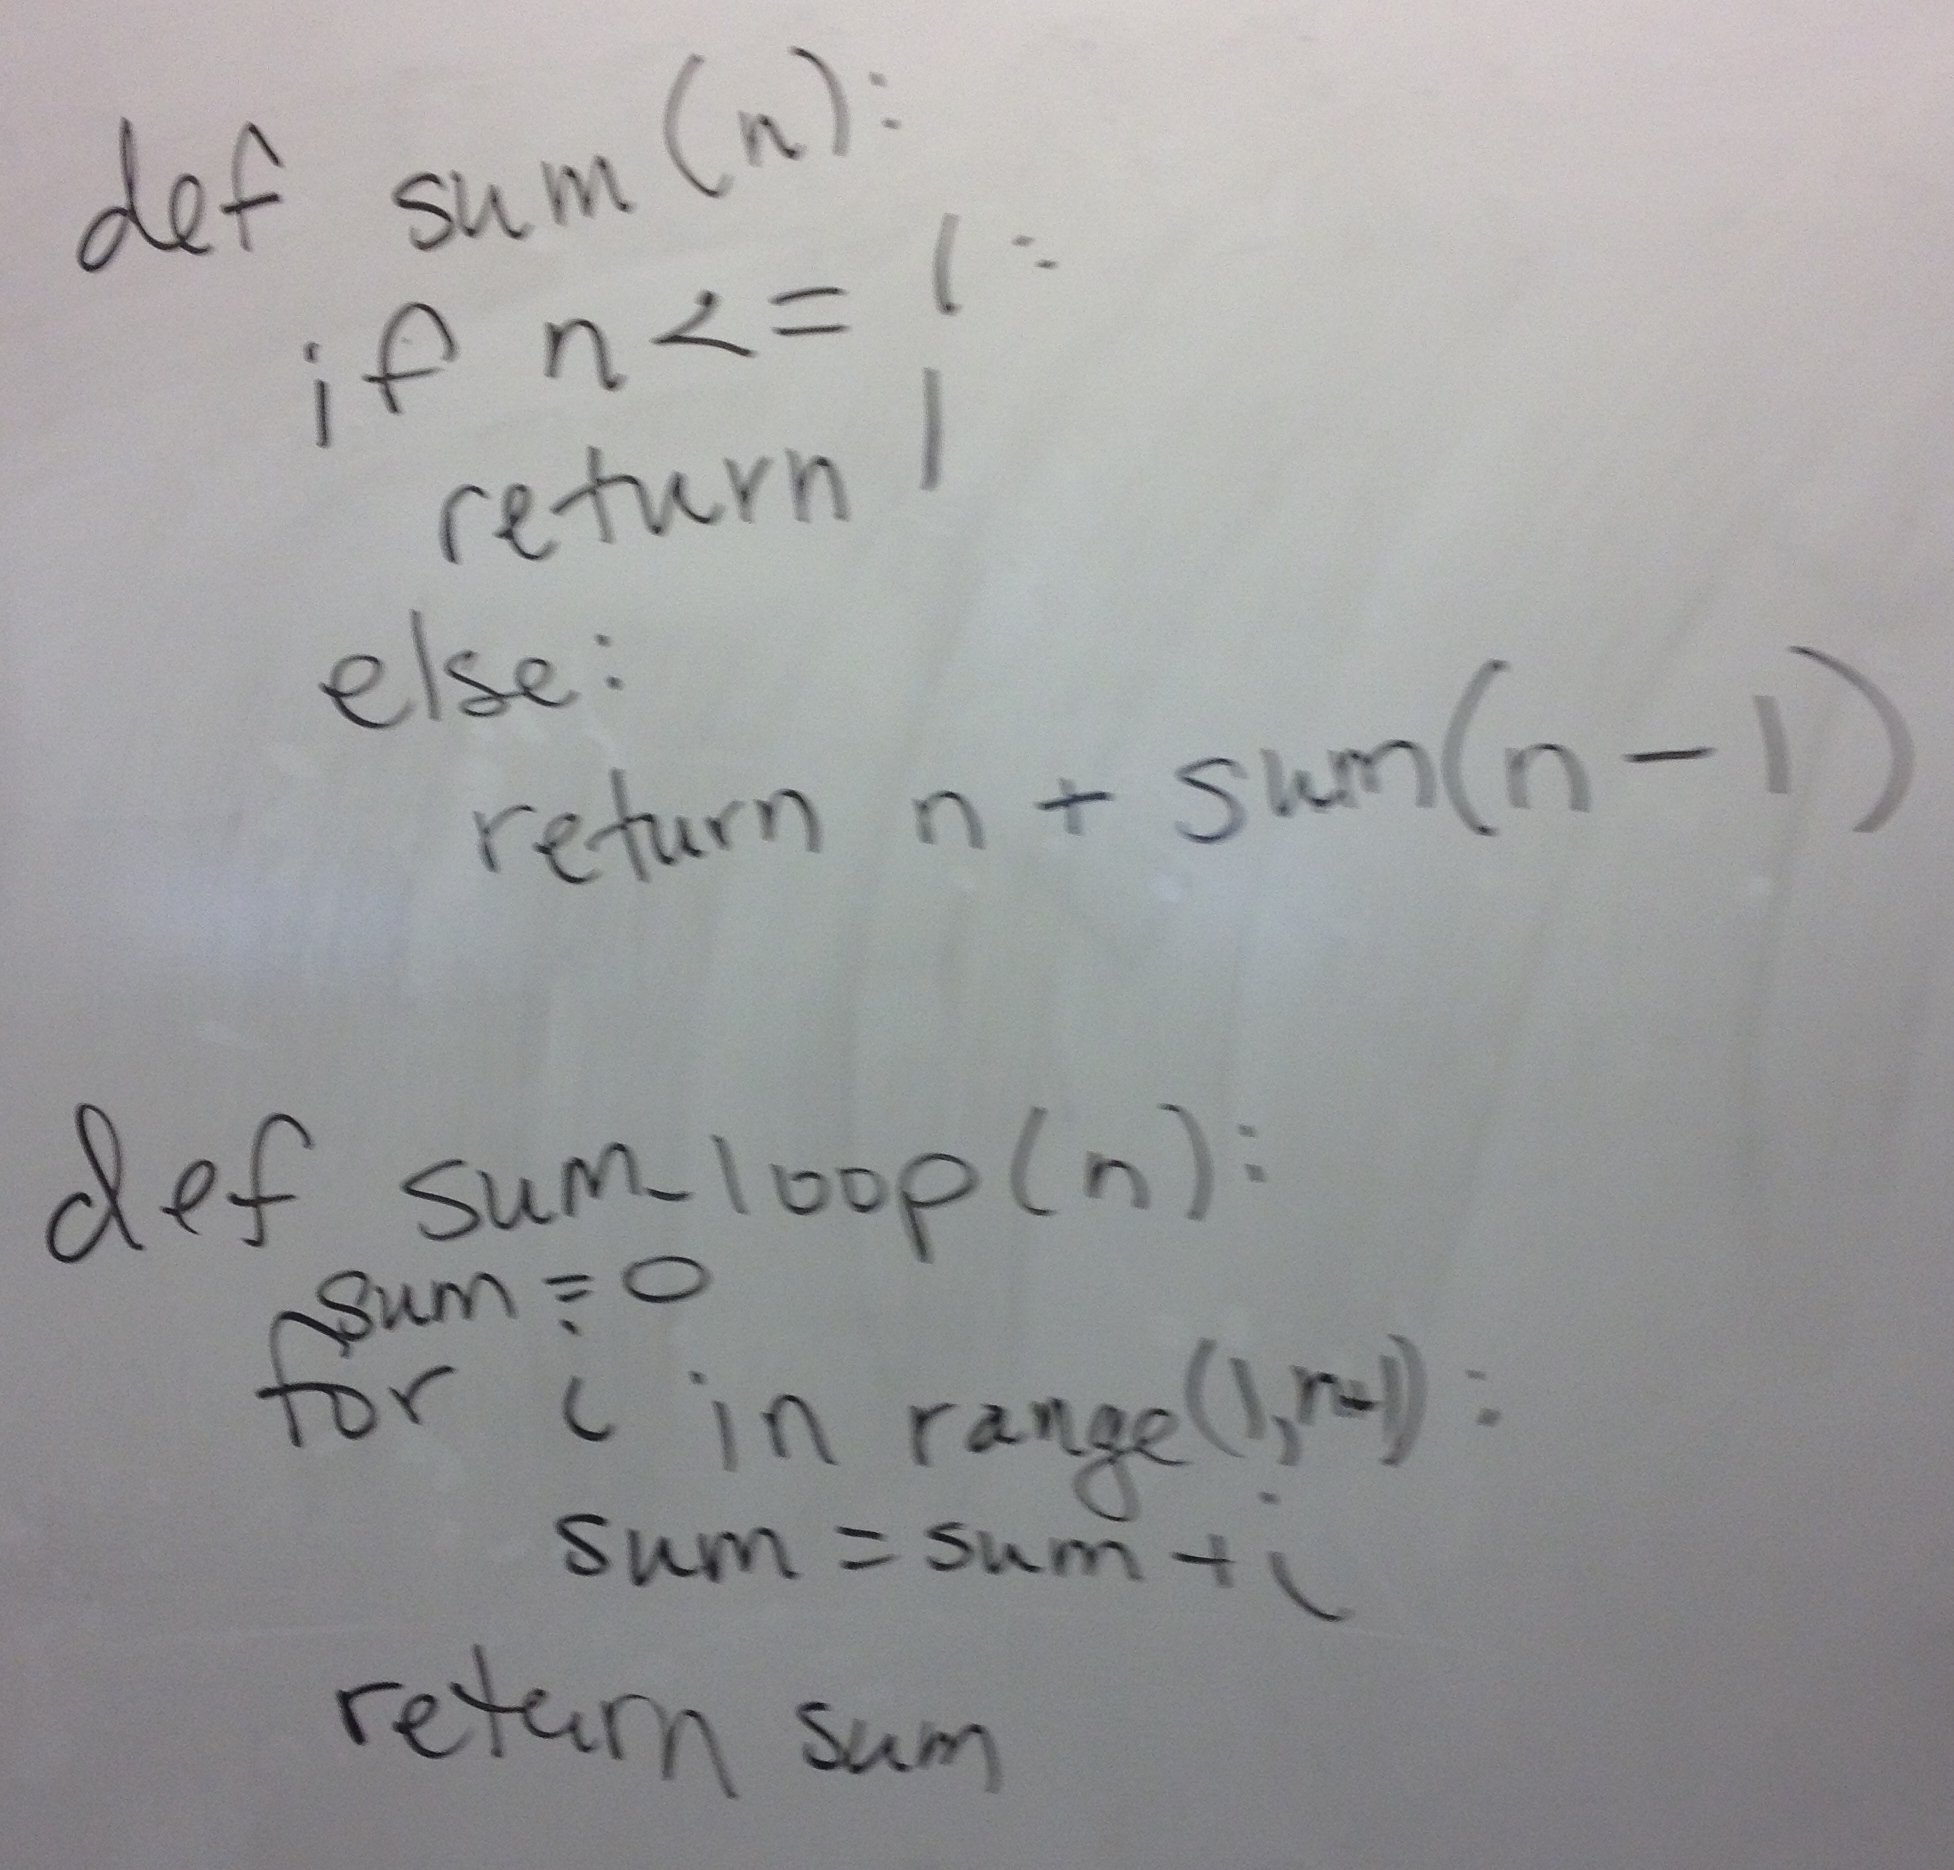 def sum(n):
if n <= 1:
return 1
else:
return n + sum(n-1)
def sum_loop(n):
sum = 0
for i in range(1,n+1):
sum = sum + i
return sum